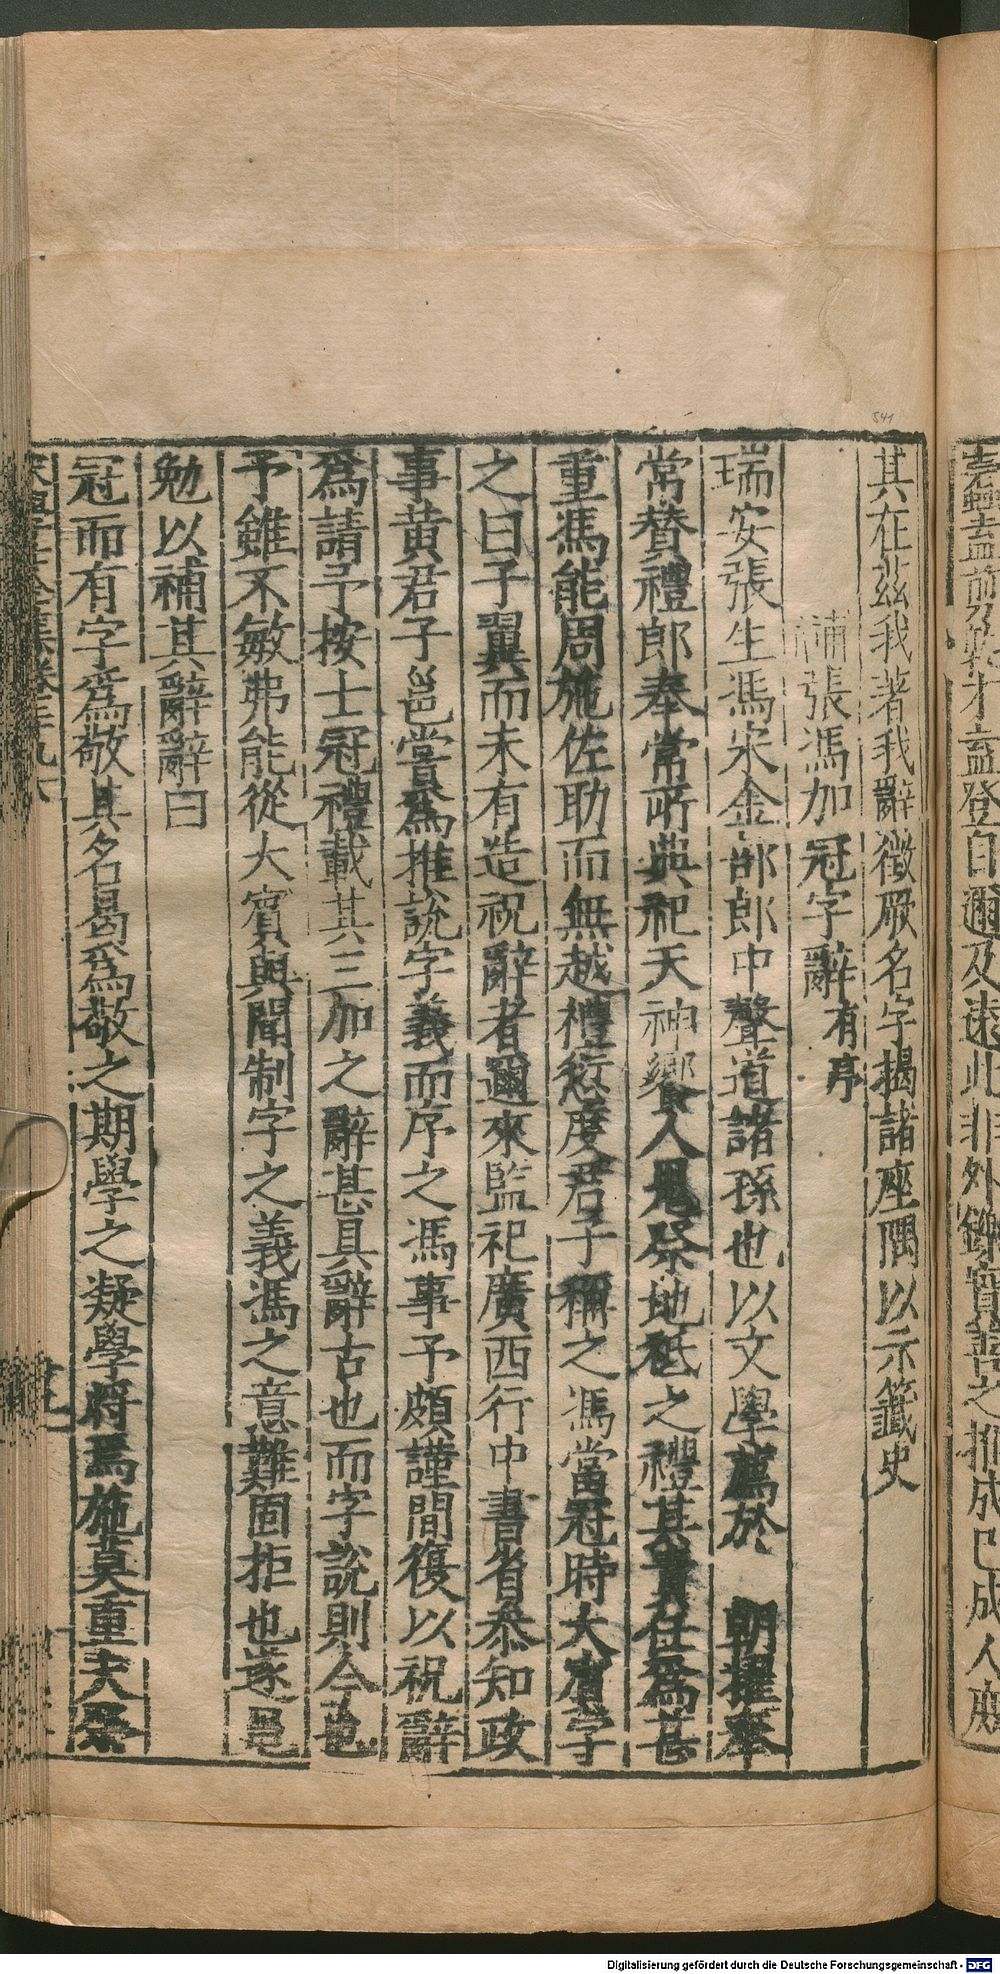 其在茲我著我辭徵厥名字揭諸座隅以示籤史
補張馮加冠字辭有序
瑞安張生馮宋金部郎中聲道諸孫也以文學薦於　朝擢奉
常賛禮郎奉常所典祀天神饗人鬼祭地祗之禮其責任爲甚
重馮能周旋佐助而無越禮愆度君子稱之馮當冠時大賔字
之曰子翼而未有造祝辭者邇來監祀廣西行中書省叅知政
事黄君子邕嘗爲推說字義而序之馮事予頗謹間復以祝辭
爲請予按士冠禮載其三加之辭甚具辭古也而字說則今也
予雖不敏弗能從大賔與聞制字之義馮之意難固拒也遂黽
勉以補其辭辭曰
冠而有字爲敬其名曷爲敬之期學之凝學將焉施莫重夫祭
541
Digitalisierung gefördert durch die Deutsche Forschungsgemeinschaft - DFG